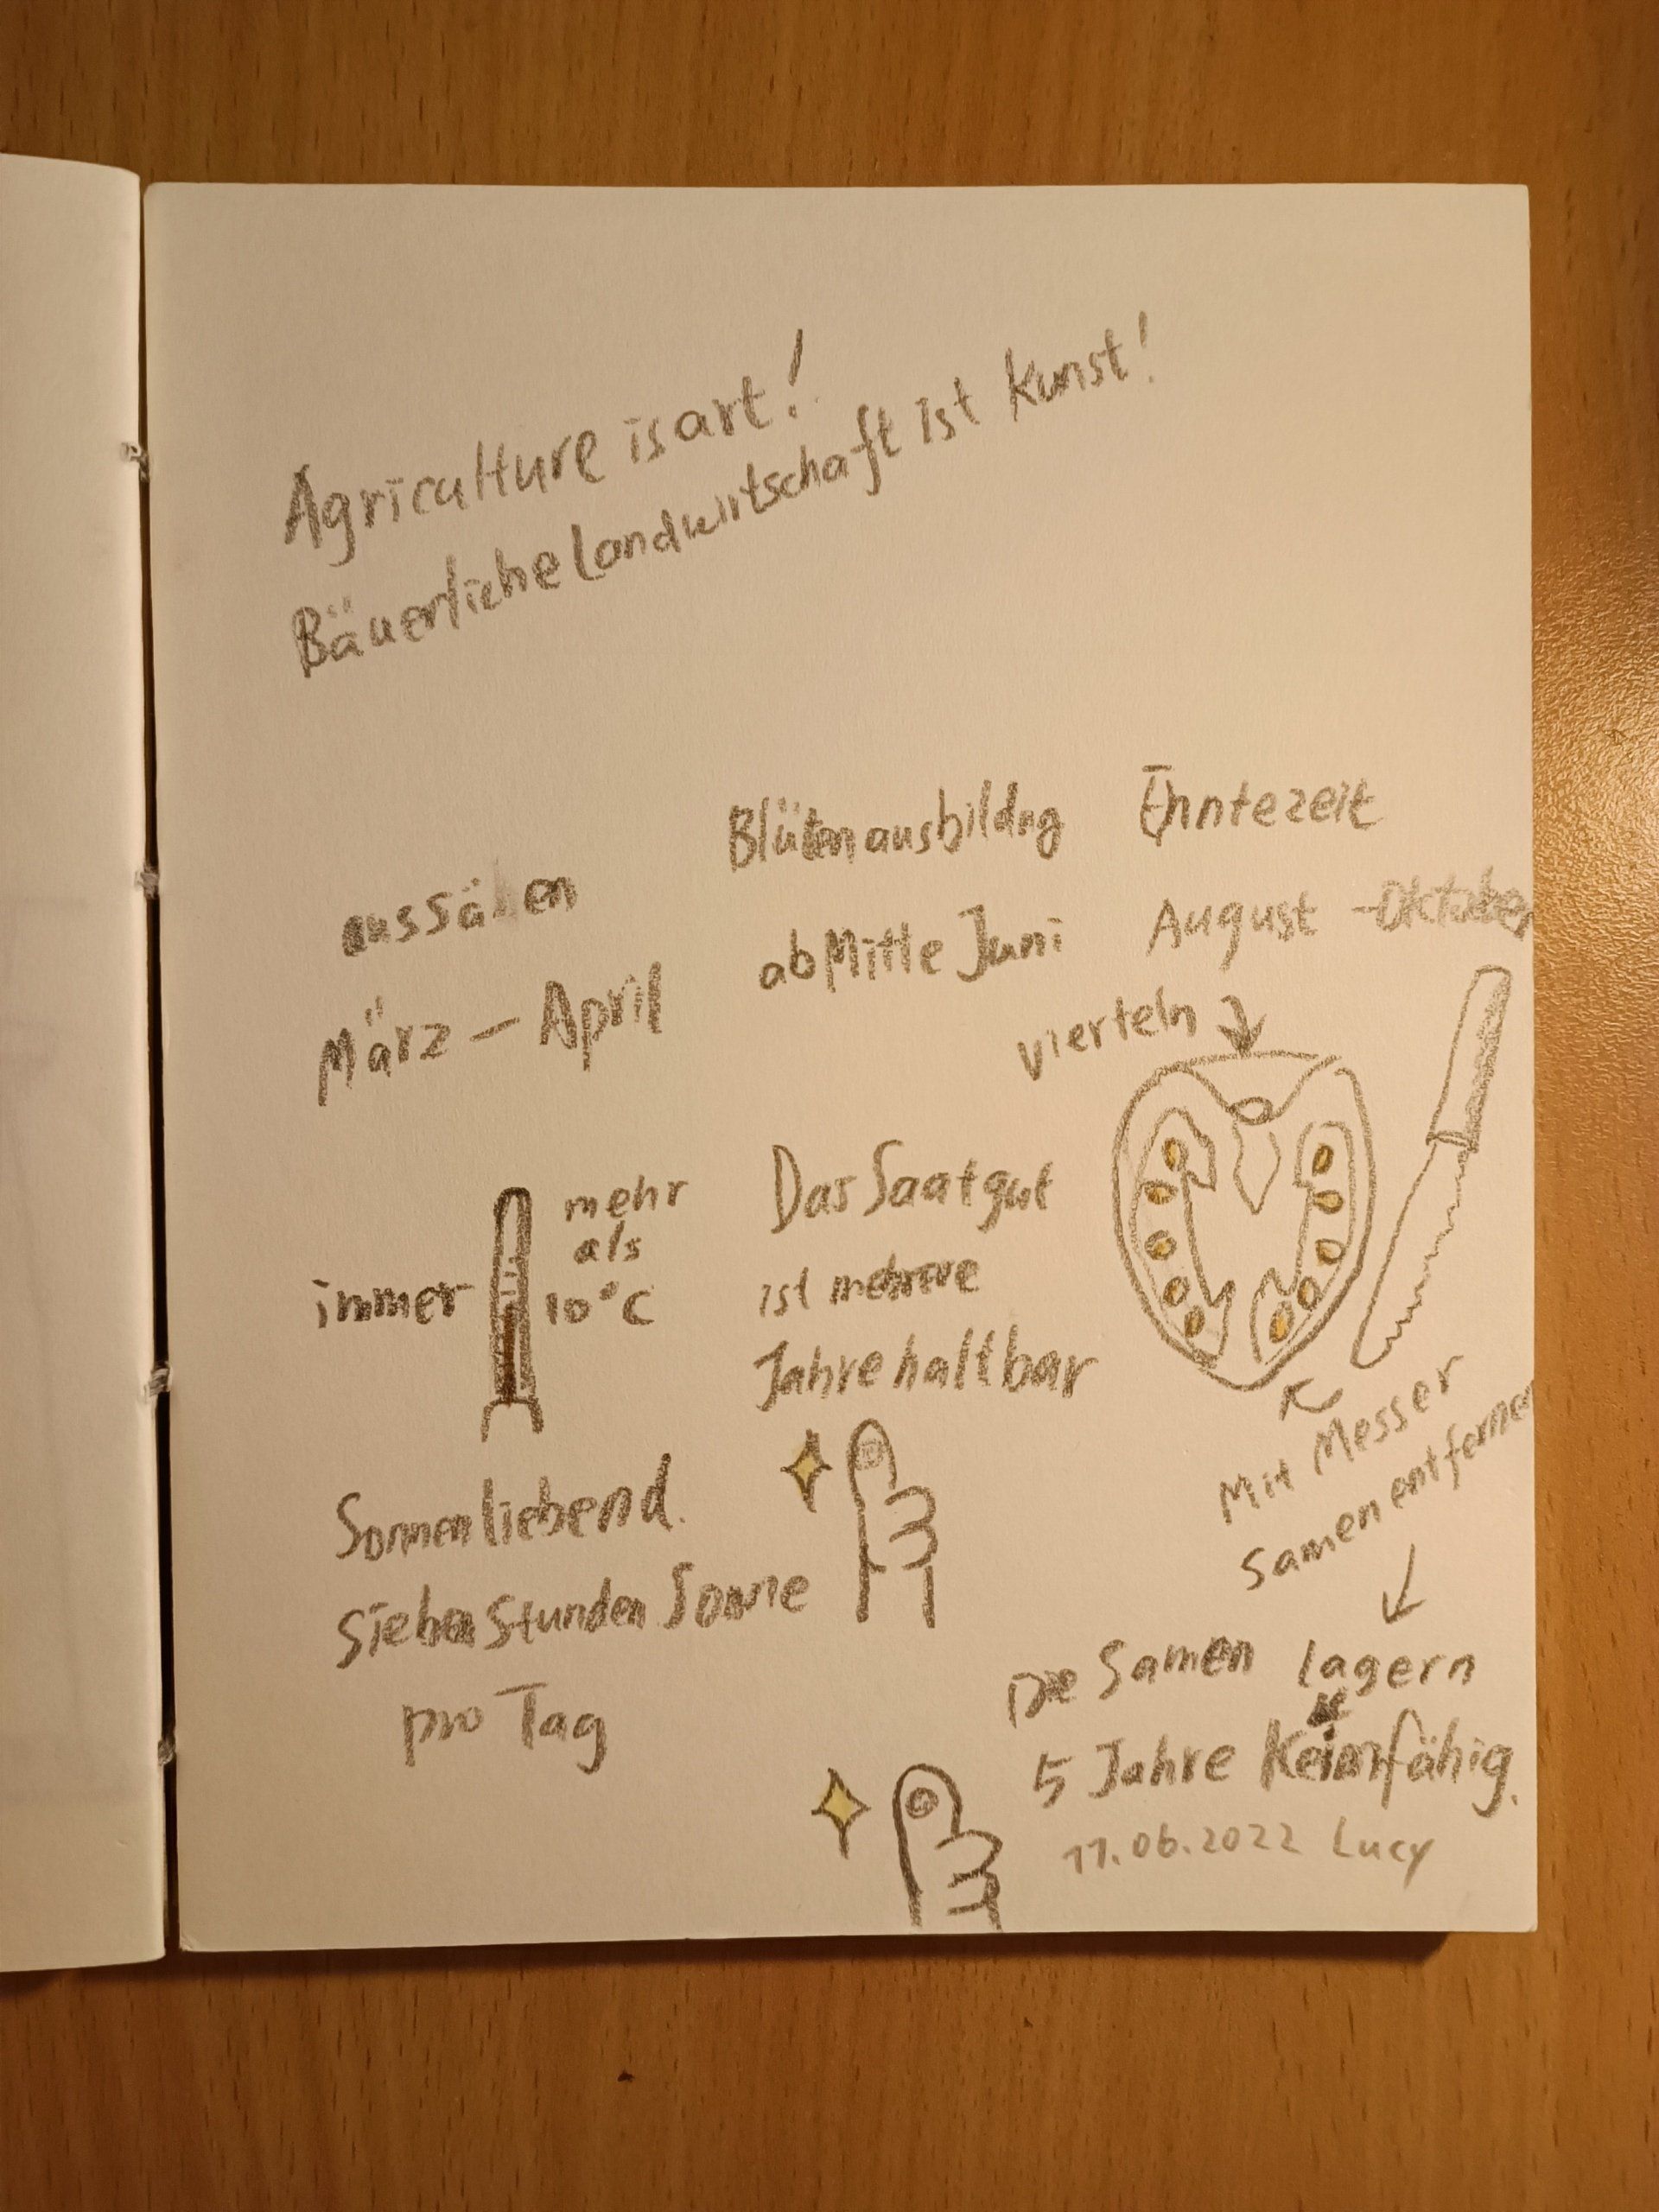 Agriculture is art!
Bäuerliche Landwirtschaft ist Kunst!
aussäen
März - April
Blütenausbildng
ab Mitte Juni
Erntezeit
August - Oktober
vierteln
immer
mehr
als
10°C
Das Saatgut
ist mehrere
Jahre haltbar
Mit Messer
Samen entfernen
Sonnenliebend.
Sieben Stunden Sonne
pro Tag
Samen lagern
5 Jahre Keimfähig.
11.06.2022 Lucy